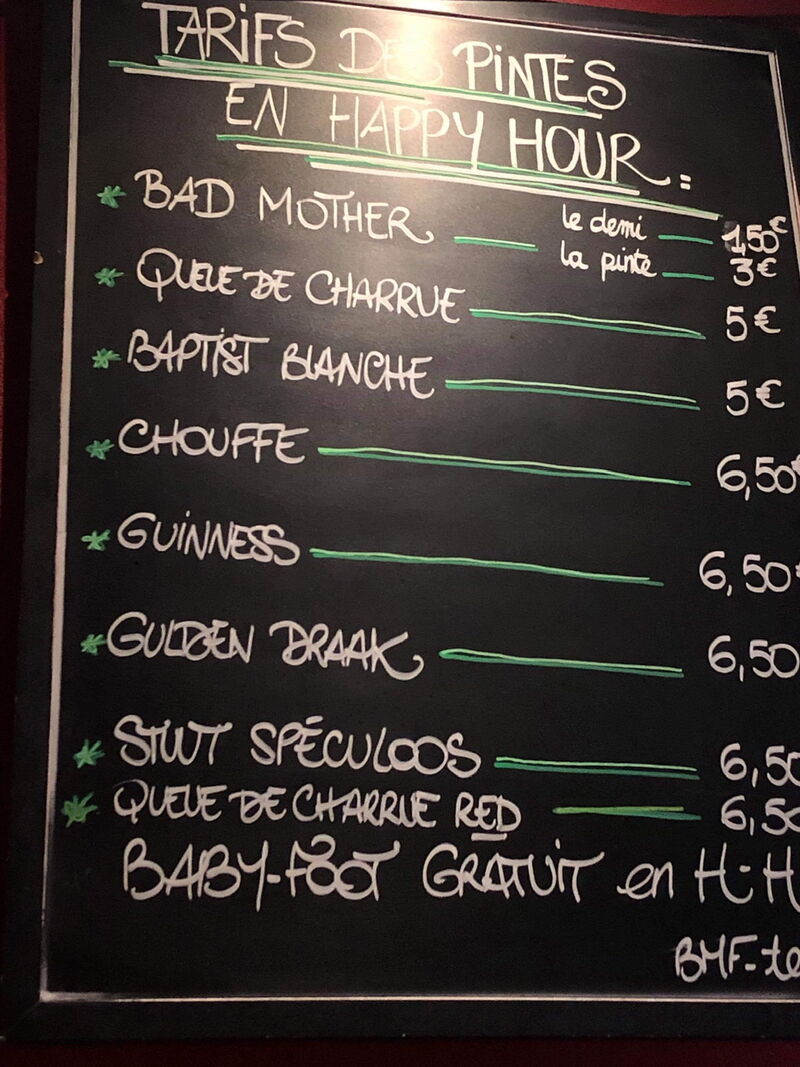 TARIFS DES PINTES
EN HAPPY HOUR :
* BAD MOTHER — le demi — 1,50€
la pinte — 3€
* QUEUE DE CHARRUE — 5€
* BAPTIST BLANCHE — 5€
* CHOUFFE — 6,50€
* GUINNESS — 6,50€
* GULDEN DRAAK — 6,50
* STUUT SPÉCULOOS — 6,50
* QUEUE DE CHARRUE RED — 6,50
BABY-FOOT GRATUIT en H-H
BMF-te